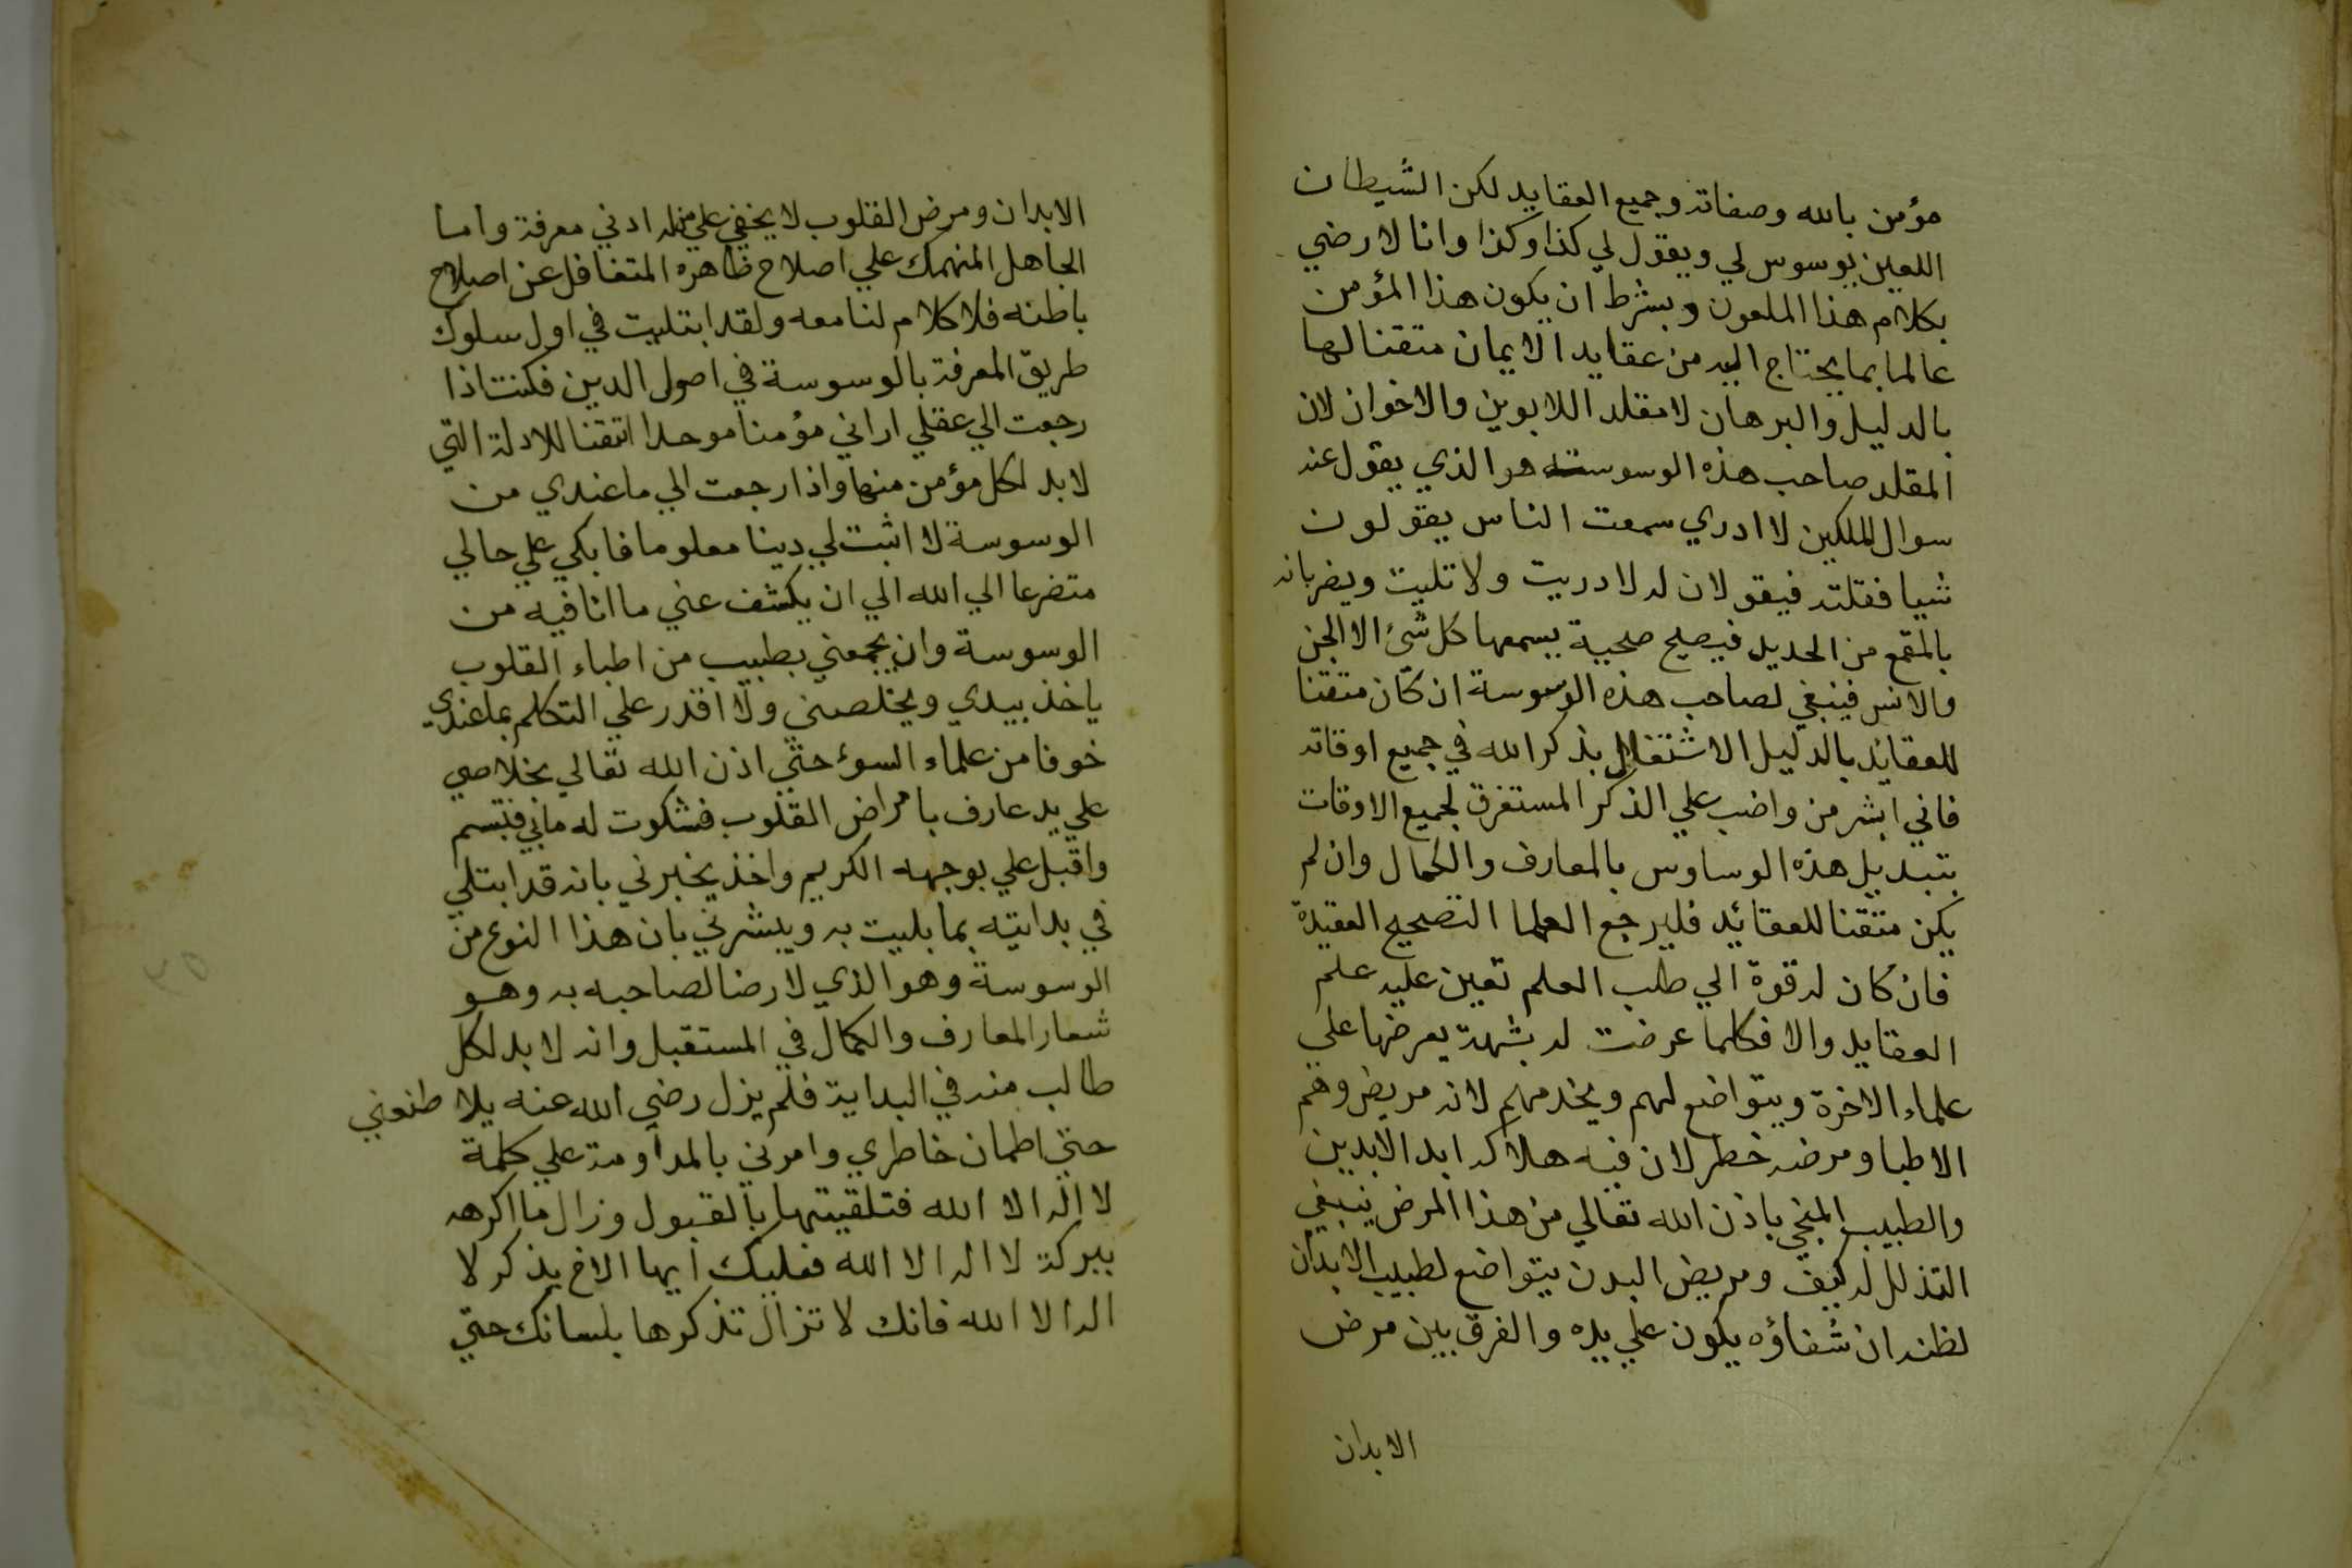 مؤمن بالله وصفاته وجميع العقايد لكن الشيطان
اللعين يوسوس لي ويقول لي كذا وكذا وانا لا رضي
بكلام هذا الملعون وبشرط ان يكون هذا المؤمن
عالما بما يحتاج اليه من عقايد الايمان متقنا لها
بالدليل والبرهان لا مقلد اللابوين والاخوان لان
المقلد صاحب هذه الوسوسة هو الذي يقول عند
سوال الملكين لا ادري سمعت الناس يقولون
شيا فقلته فيقولان له لا دريت ولا تليت ويضربانه
بالمقمع من الحديد فيصيح صحيية يسمعها كل شئ الا الجن
والانس فينبغي لصاحب هذه الوسوسة ان كان متقنا
للعقائد بالدليل الاشتغال بذكر الله في جميع اوقاته
فاني ابشر من واضب علي الذكر المستغرق لجميع الاوقات
بتبديل هذه الوساوس بالمعارف والكمال وان لم
يكن متقنا للعقائد فليرجع العلما التصحيح العقيدة
فان كان له قوة الي طلب العلم تعين عليه علم
العقايد والا فكلما عرضت له بشهة يعرضها علي
علماء الاخرة ويتواضع لهم ويخدمهم لانه مريض وهم
الاطبا ومرضه خطر لان فيه هلاكه ابد الابدين
والطبيب المنجي باذن الله تعالي من هذا المرض ينبغي
التذلل له كيف ومريض البدن يتواضع لطبيب الابدان
لظنه ان شفاؤه يكون علي يده والفرق بين مرض
الابدان
الابدان ومرض القلوب لا يخفي علي من له ادني معرفة واما
الجاهل المنهمك علي اصلاح ظاهره المتغافل عن اصلاح
باطنه فلا كلام لنا معه ولقد ابتليت في اول سلوك
طريق المعرفة بالوسوسة في اصول الدين فكنت اذا
رجعت الي عقلي اراني مؤمنا موحدا اتقنا للادلة التي
لا بد لكل مؤمن منها واذا رجعت الي ما عندي من
الوسوسة لا اثبت لي دينا معلوما فابكي علي حالي
متضرعا الي الله الي ان يكشف عني ما انا فيه من
الوسوسة وان يجمعني بطبيب من اطباء القلوب
ياخذ بيدي ويخلصني ولا اقدر علي التكلم بما عندي
خوفا من علماء السوء حتي اذن الله تعالي بخلاصي
علي يد عارف بامراض القلوب فشكوت له ما بي فتبسم
واقبل علي بوجهه الكريم واخذ يخبرني بانه قد ابتلي
في بدايته بما بليت به ويبشرني بان هذا النوع من
الوسوسة وهو الذي لا رضا لصاحبه به وهو
شعار المعارف والكمال في المستقبل وانه لا بد لكل
طالب منه في البداية فلم يزل رضي الله عنه يلاطنعني
حتي اطمان خاطري وامرني بالمداومة علي كلمة
لا اله الا الله فتلقيتها بالقبول وزال ما اكرهه
ببركة لا اله الا الله فعليك ايها الاخ بذكر لا
اله الا الله فانك لا تزال تذكرها بلسانك حتي